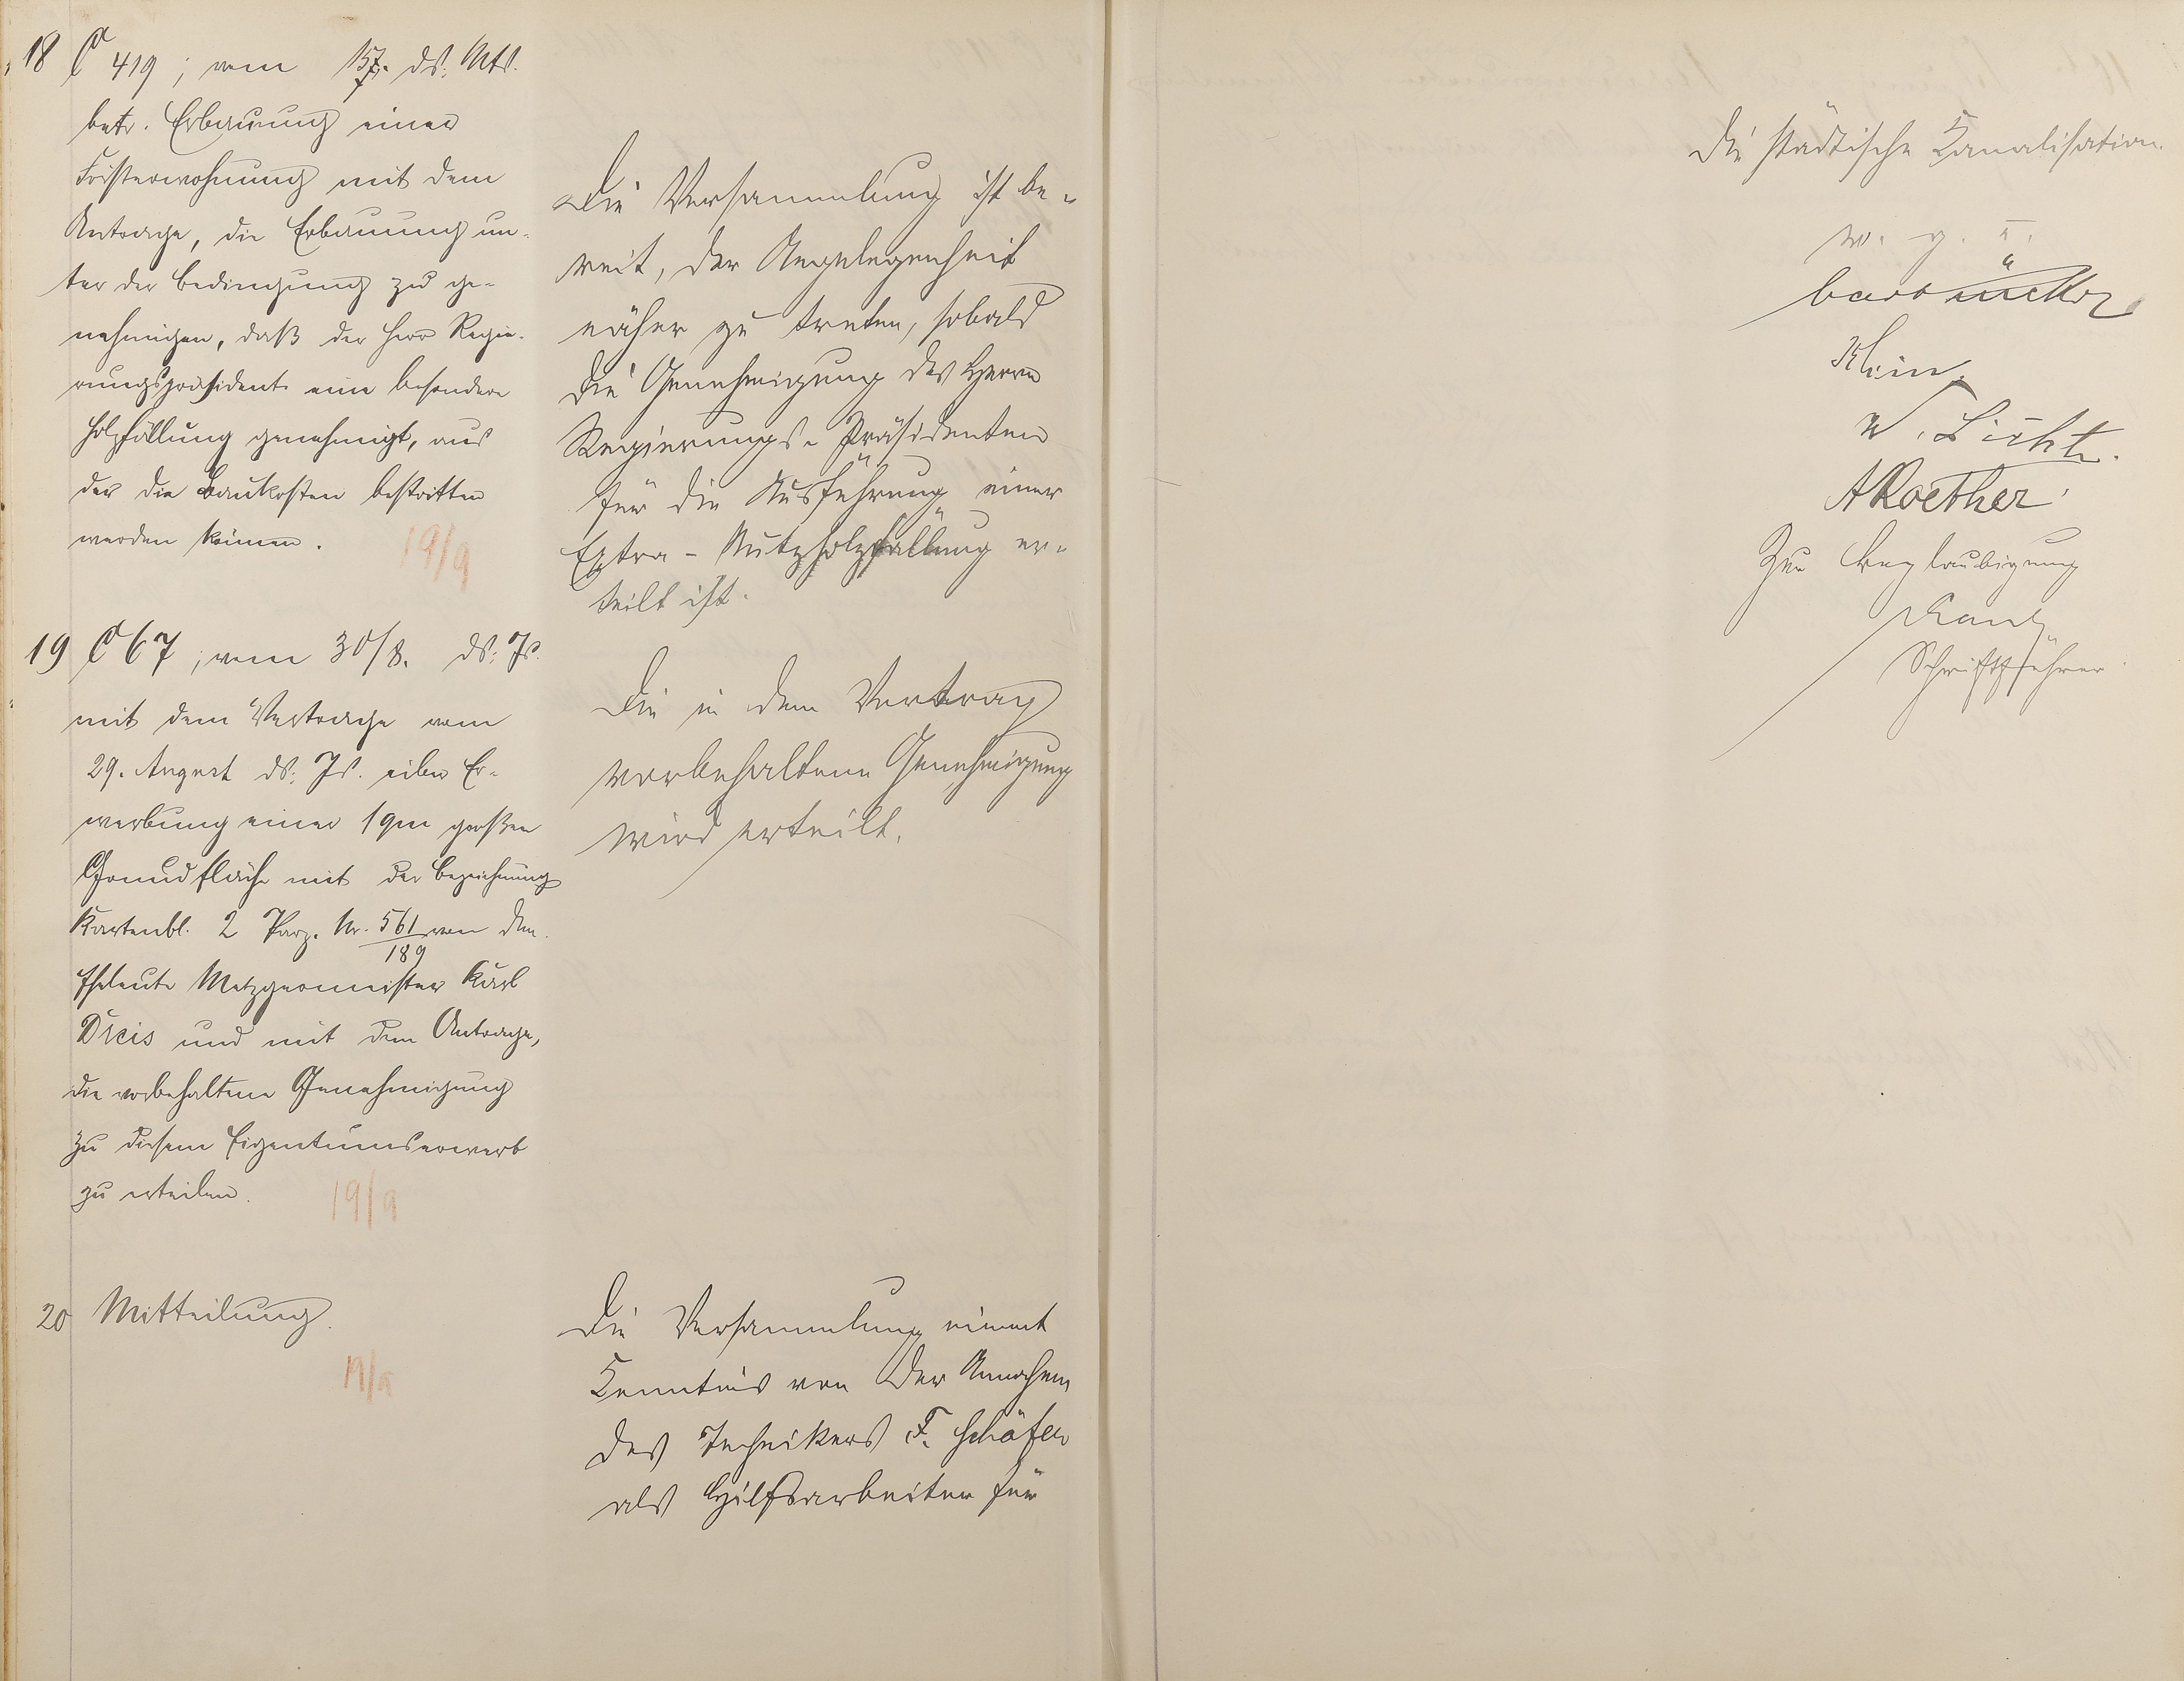 18 C 419; vom 17. ds. Mts.
betr. Erbauung einer
Försterwohnung mit dem
Antrage, die Erbauung un-
ter der Bedingung zu ge-
nehmigen, daß der Herr Regie-
rungspräsident eine besondere
Holzfällung genehmigt, aus
der die Baukosten bestritten
werden können.
19/9
Die Versammlung ist be-
reit, der Angelegenheit
näher zu treten, sobald
die Genehmigung des Herrn
Regierungs-Präsidenten
für die Ausführung einer
Extra-Nutzholzfällung er-
teilt ist.
19 C 67; vom 30/8. ds. Js.
mit dem Vertrage vom
29. August ds. Js. über Er-
werbung einer 1 qm großen
Grundfläche mit der Bezeichnung
Kartenbl. 2 Parz. Nr. 561/189 von den
Eheleute Metzgermeister Karl
Dreis und mit dem Antrage,
die vorbehaltene Genehmigung
zu diesem Eigentumserwerb
zu erteilen.
19/9
Die in dem Vertrag
vorbehaltene Genehmigung
wird erteilt.
20 Mitteilung.
19/9
Die Versammlung nimmt
Kenntnis von der Annahme
des Technikers F. Schäfer
als Hilfsarbeiter für
die städtische Kanalisation.
v. g. u.
Klein.
W. Licht.
A Roether
Zur Beglaubigung
Schriftführer